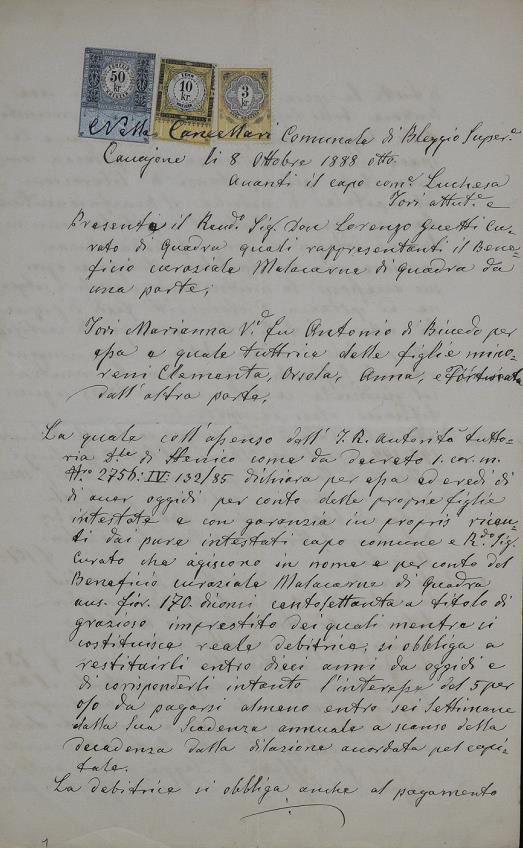 50
kr.
10
kr.
3
kr.
Nella Cancelleria Comunale di Bleggio Super.e
Cavajone li 8 Ottobre 1888 otto.
Avanti il capo com.e Luchesa
Tori attut.o e
Presenti il Rend.o Sig. Don Lorenzo Guetti Cu-
rato di Quadra quali rappresentanti il Bene-
ficio curaziale Malacarne di Quadra da
una parte;
Tori Marianna V.a fu Antonio di Binedo per
essa e quale tuttrice delle figlie mino-
reni Clementa, Orsola, Anna, e Fortunata
dall'altra parte,
La quale coll'assenso dall'I. R. Autorità tutto-
ria di Stenico come da decreto 1. cor. m.
Nro 2756: IV: 132/85 dichiara per essa ed eredi di
di aver oggidi per conto delle proprie figlie
intestate e con garanzia in proprio ricevu-
ti dai pure intestati capo comune e R.do Sig.
Curato che agiscono in nome e per conto del
Beneficio curaziale Malacarne di Quadra
aus. fior. 170. diconsi centosettanta a titolo di
grazioso imprestito dei quali mentre si
costituisce reale debitrice, si obbliga a
restituirli entro dieci anni da oggidi e
di corisponderli intanto l'interesse del 5 per
o/o da pagarsi almeno entro sei Settimane
dalla sua Scadenza annuale a scanso della
decadenza dalla dilazione acordata pel capi-
tale.
La debitrice si obbliga anche al pagamento
1